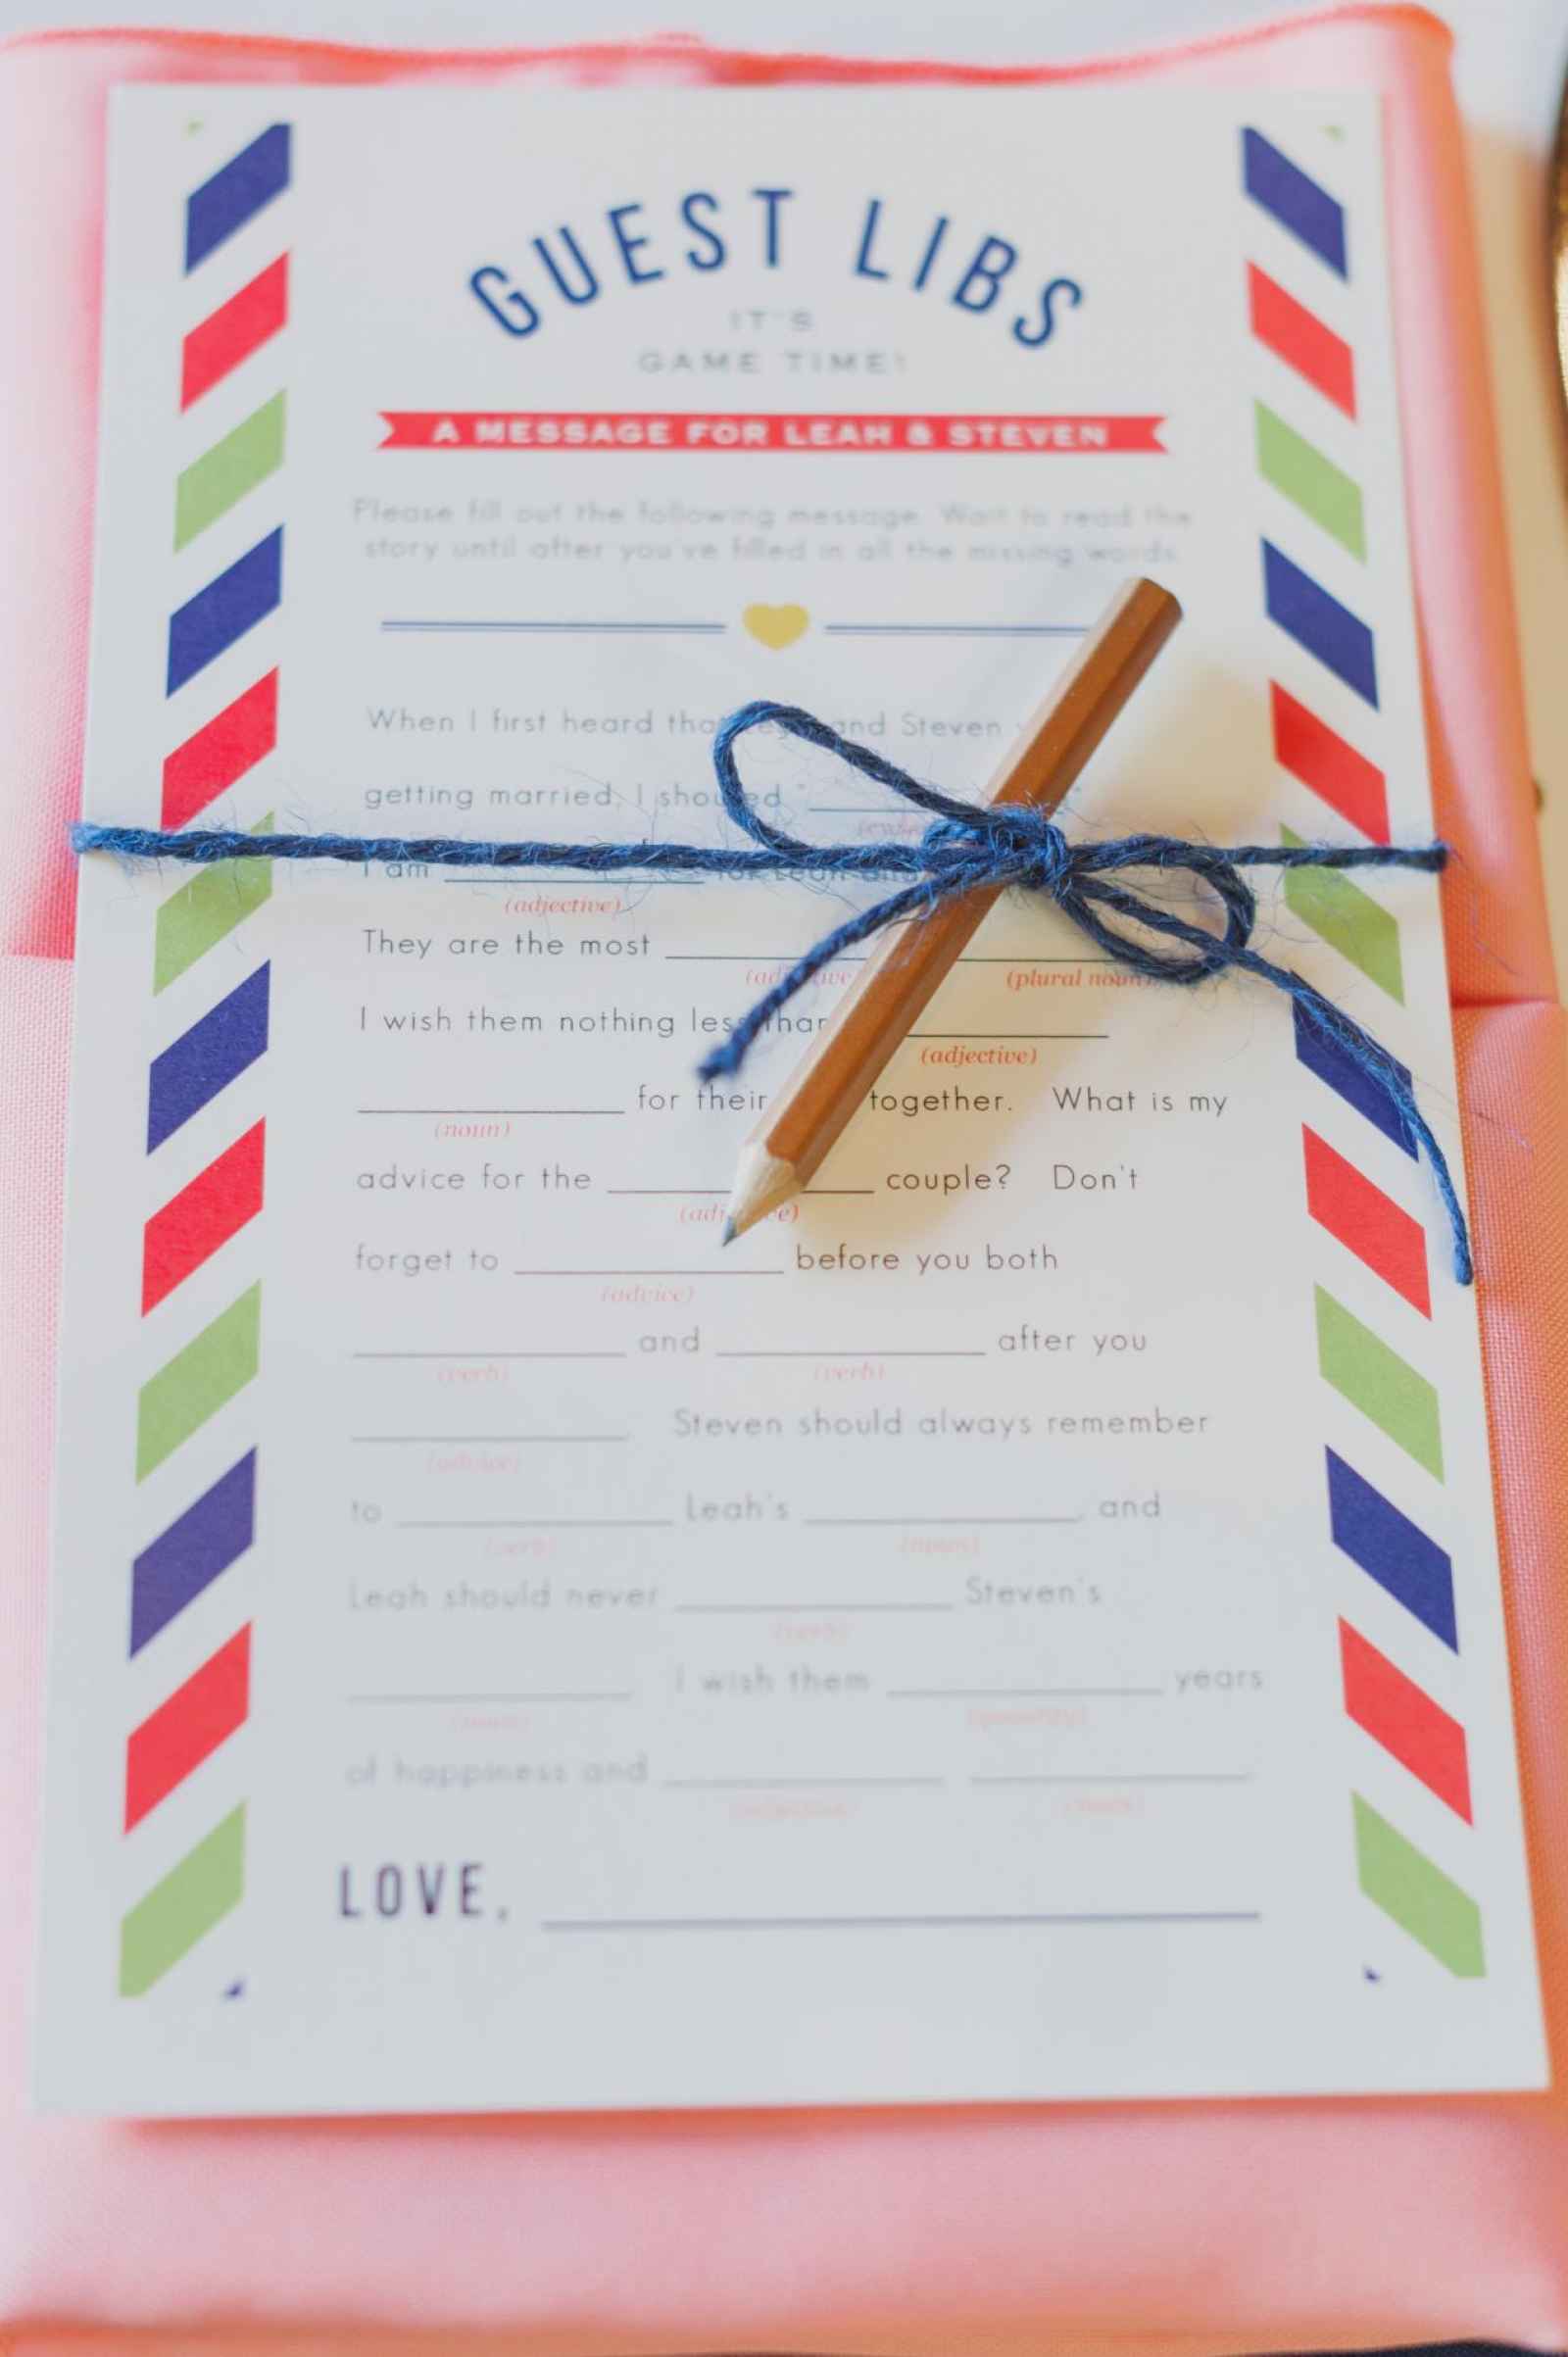 GUEST LIBS
IT'S
GAME TIME!
A MESSAGE FOR LEAH & STEVEN
Please fill out the following message. Wait to read the
story until after you've filled in all the missing words.
When I first heard and Steven
getting married, I shouted "
I am for Leah and
(adjective)
They are the most
(adjective) (plural noun)
I wish them nothing less than
(adjective)
for their together. What is my
(noun)
advice for the couple? Don't
(adjective)
forget to before you both
(advice)
and after you
(verb) (verb)
Steven should always remember
(advice)
to Leah's , and
(verb) (noun)
Leah should never Steven's
(verb)
I wish them years
(noun) (quantity)
of happiness and
(adjective)
LOVE,